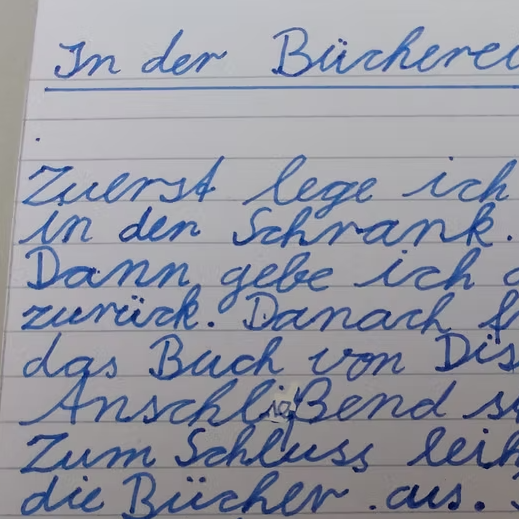 In der Bücherei
Zuerst lege ich
in den Schrank.
Dann gebe ich
zurück. Danach
das Buch von
Anschließend
Zum Schluss
die Bücher aus.